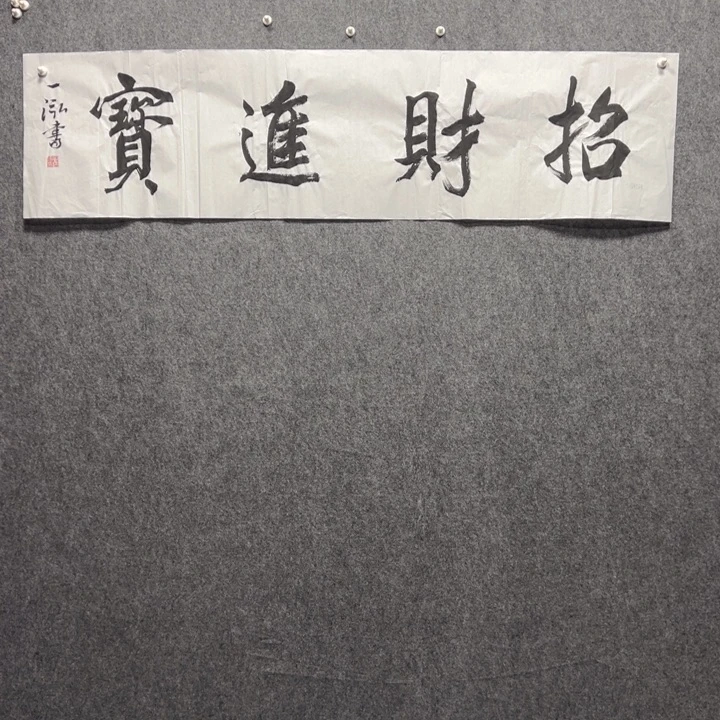 招財進寶
一泓書